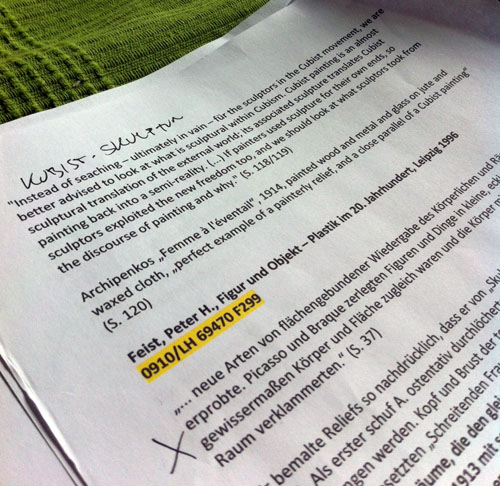 KUBIST. SKULPTUR
"Instead of seaching – ultimately in vain – für the sculptors in the Cubist movement, we are
better advised to look at what's sculptural within Cubism. Cubist painting is an almost
sculptural translation of the external world; its associated sculpture translates Cubist
painting back into a semi-reality. (...) If painters used sculpture for their own ends, so
sculptors exploited the new freedom too, and we should look at what sculptors took from
the discourse of painting and why." (S. 118/119)
Archipenkos „Femme à l'éventail", 1914, painted wood and metal and glass on jute and
waxed cloth, „perfect example of a painterly relief, and a close parallel of a Cubist painting"
(S. 120)
Feist, Peter H., Figur und Objekt – Plastik im 20. Jahrhundert, Leipzig 1996
0910/LH 69470 F299
„... neue Arten von flächengebundener Wiedergabe des Körperlichen und
erprobte. Picasso und Braque zerlegten Figuren und Dinge in kleine,
gewissermaßen Körper und Fläche zugleich waren und die Körper
Raum verklammerten." (S. 37)
bemalte Reliefs so nachdrücklich, dass er von
Als erster schuf A. ostentativ durchlöcherte
werden. Kopf und Brust der
„Schreitenden
die den
1913 mit